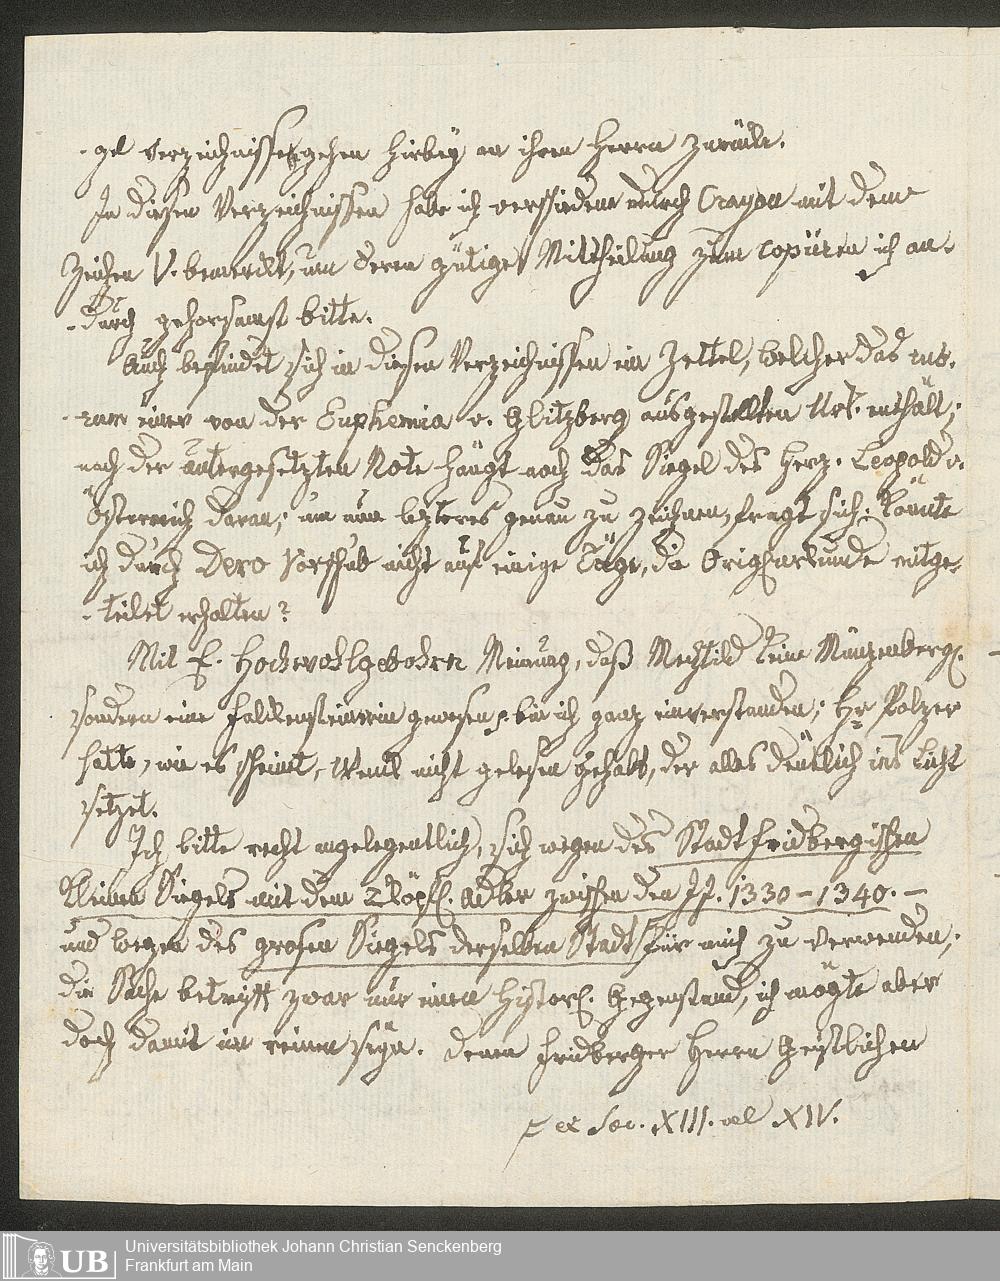 -gel Verzeichnisse gehen hirbey an ihren Herrn zurück.
In diesen Verzeichnissen habe ich verschiedene durch Crayon mit dem
Zeichen V. bemerckt, um deren gütige Mittheilung zum copüren ich an-
-durch gehorsamst bitte.
Auch befindet sich in diesen Verzeichnissen ein Zettel, welcher das
einer von der Euphemia v. Glitzberg ausgestellten Urk. enthält;
nach der untergesetzten Note hängt noch das Siegel des Herz. Leopold v.
Österreich daran; um nun lezteres genau zu zeichnen, fragt sich: Könnte
ich durch Dero Vorschub nicht auf einige Täge, die Orig. Urkunde mitge-
-teilet erhalten?
Mit E. Hochwohlgebohrn Meinung, daß Mechtild keine Münzenberg.
sondern eine Falckensteinerin gewesen, bin ich ganz einverstanden; Hr Polzer
hatte, wie es scheint, Wenck nicht gelesen gehabt, der alles deutlich ins Licht
setzet.
Ich bitte recht angelegentlich, sich wegen des Stadt Fridbergischen
kleinen Siegels mit dem 2köpf. Adler zwischen den JJ. 1330 - 1340. -
und wegen des grosen Siegels derselben Stadt für mich zu verwenden;
die Sache betrifft zwar nur einen histor. Gegenstand, ich mögte aber
doch damit im reinen seyn. Denen Fridberger Herrn Geistlichen
ex Sec. XIII. vel XIV.
Universitätsbibliothek Johann Christian Senckenberg
Frankfurt am Main
UB